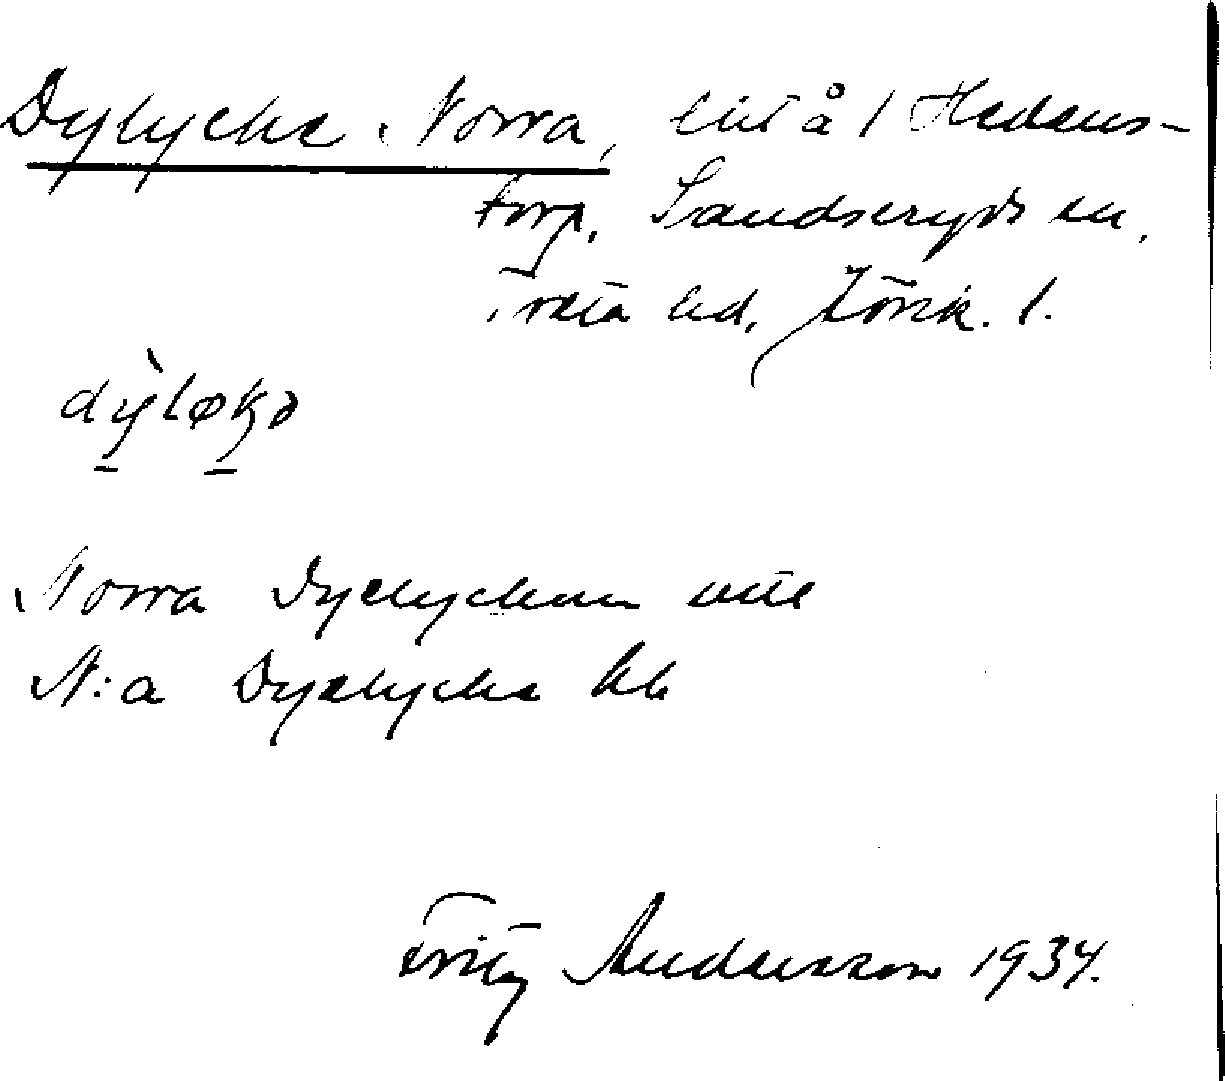 Dylycke Norra, lht å 1 Hedens-
torp, Sandseryds sn,
Tveta hd, Jönk. l.
dỳløkə
Norra Dyelyckan
N:a Dyelycke
Fritz Andersson 1934.